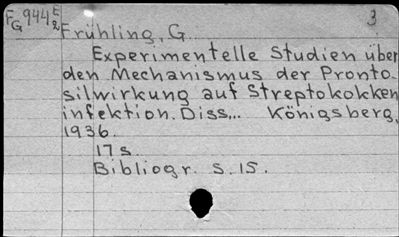 FG944E2 3
Frühling, G.
Experimentelle Studien über
den Mechanismus der Pronto-
silwirkung auf Streptokokken
infektion. Diss... Königsberg,
1936.
17s
Bibliogr. S. 15.